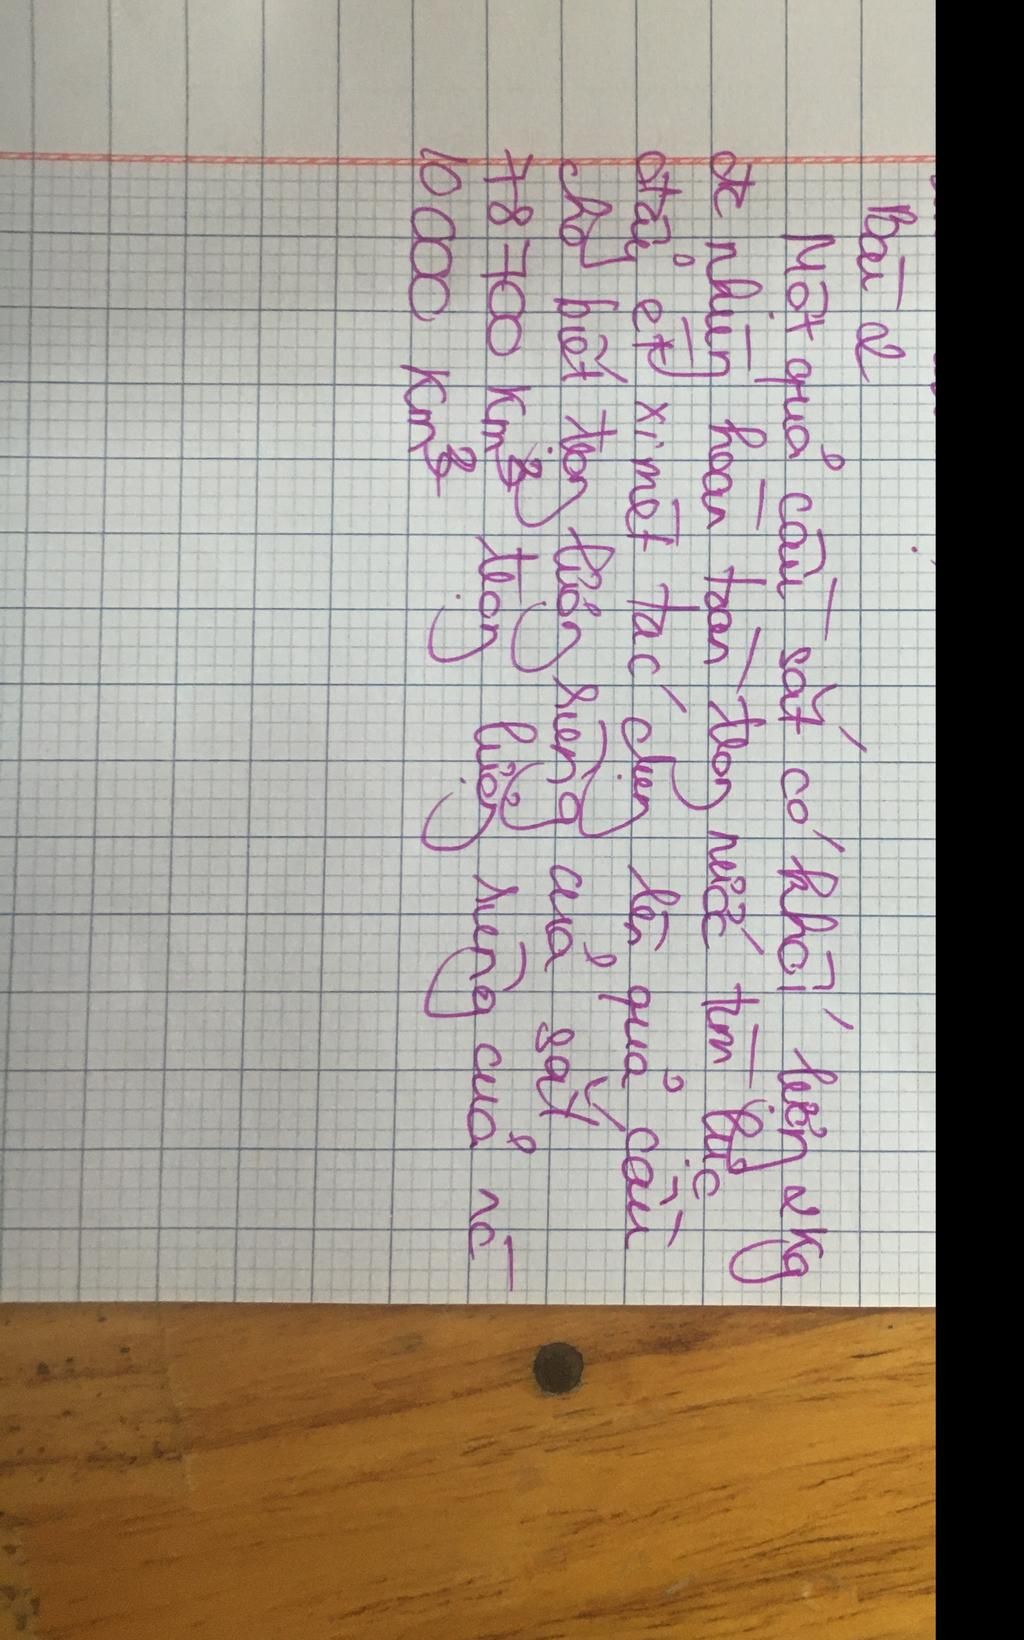 Bài 2
Một quả cầu sắt có khối lượng 2kg
đc nhúng hoàn toàn trong nước tìm lực
đẩy Ác si mét tác dụng lên quả cầu
cho biết trọng lượng riêng của sắt
78700 Km3 trọng lượng riêng của nc
10000 Km3